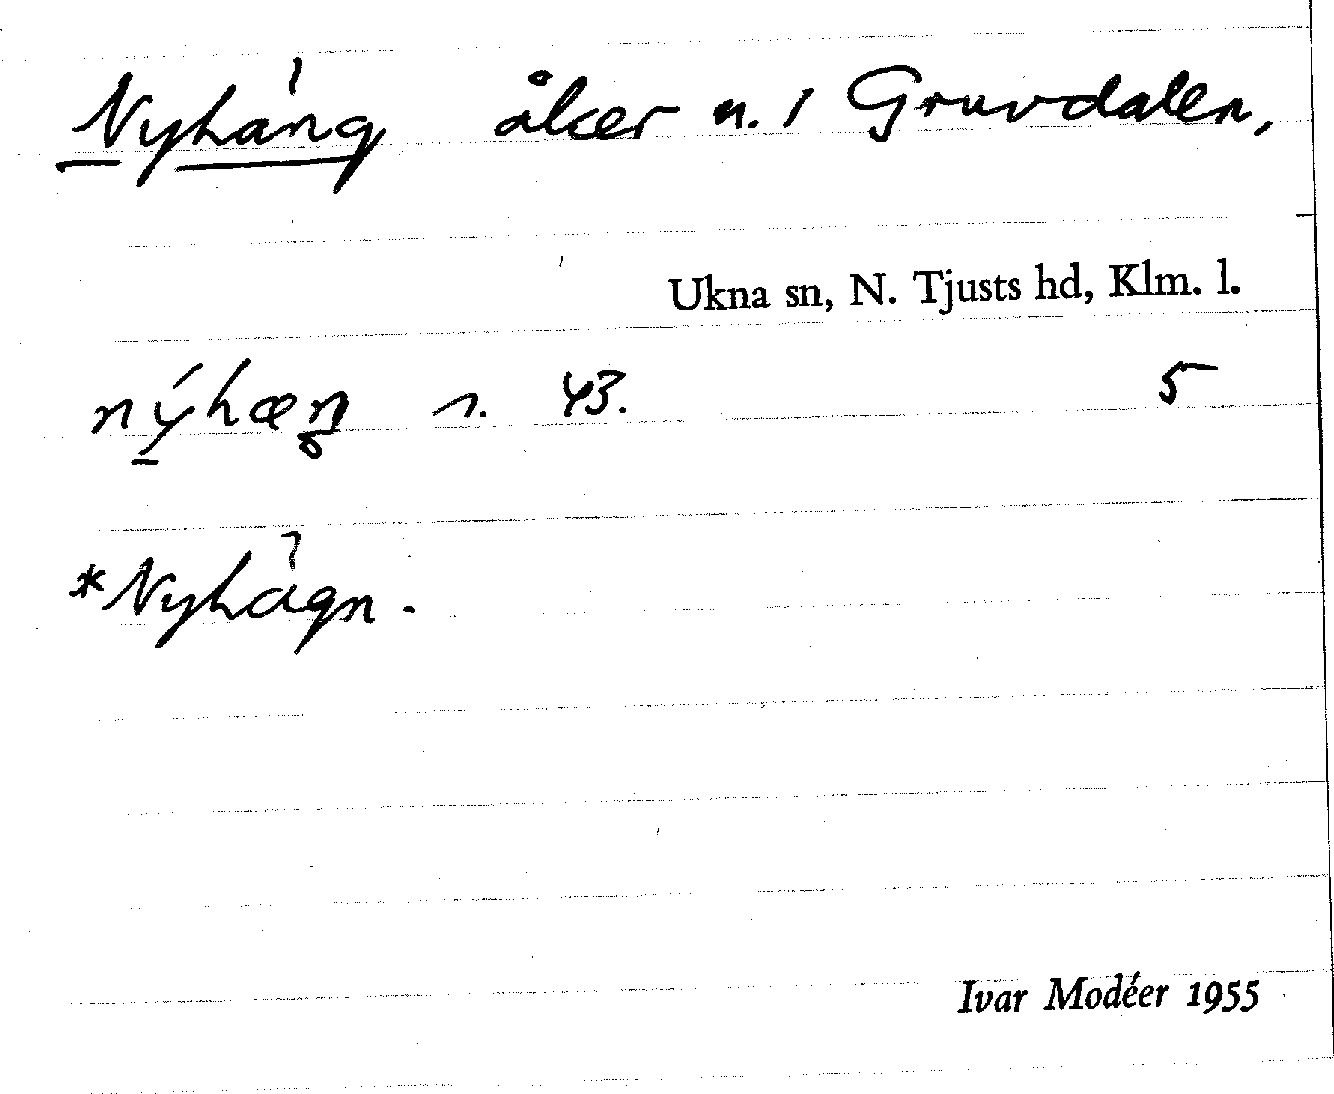 Nyháng åker n. 1 Gruvdalen,
Ukna sn, N. Tjusts hd, Klm. l.
nýhæŋ n. 43. 5
*Nyhägn.
Ivar Modéer 1955